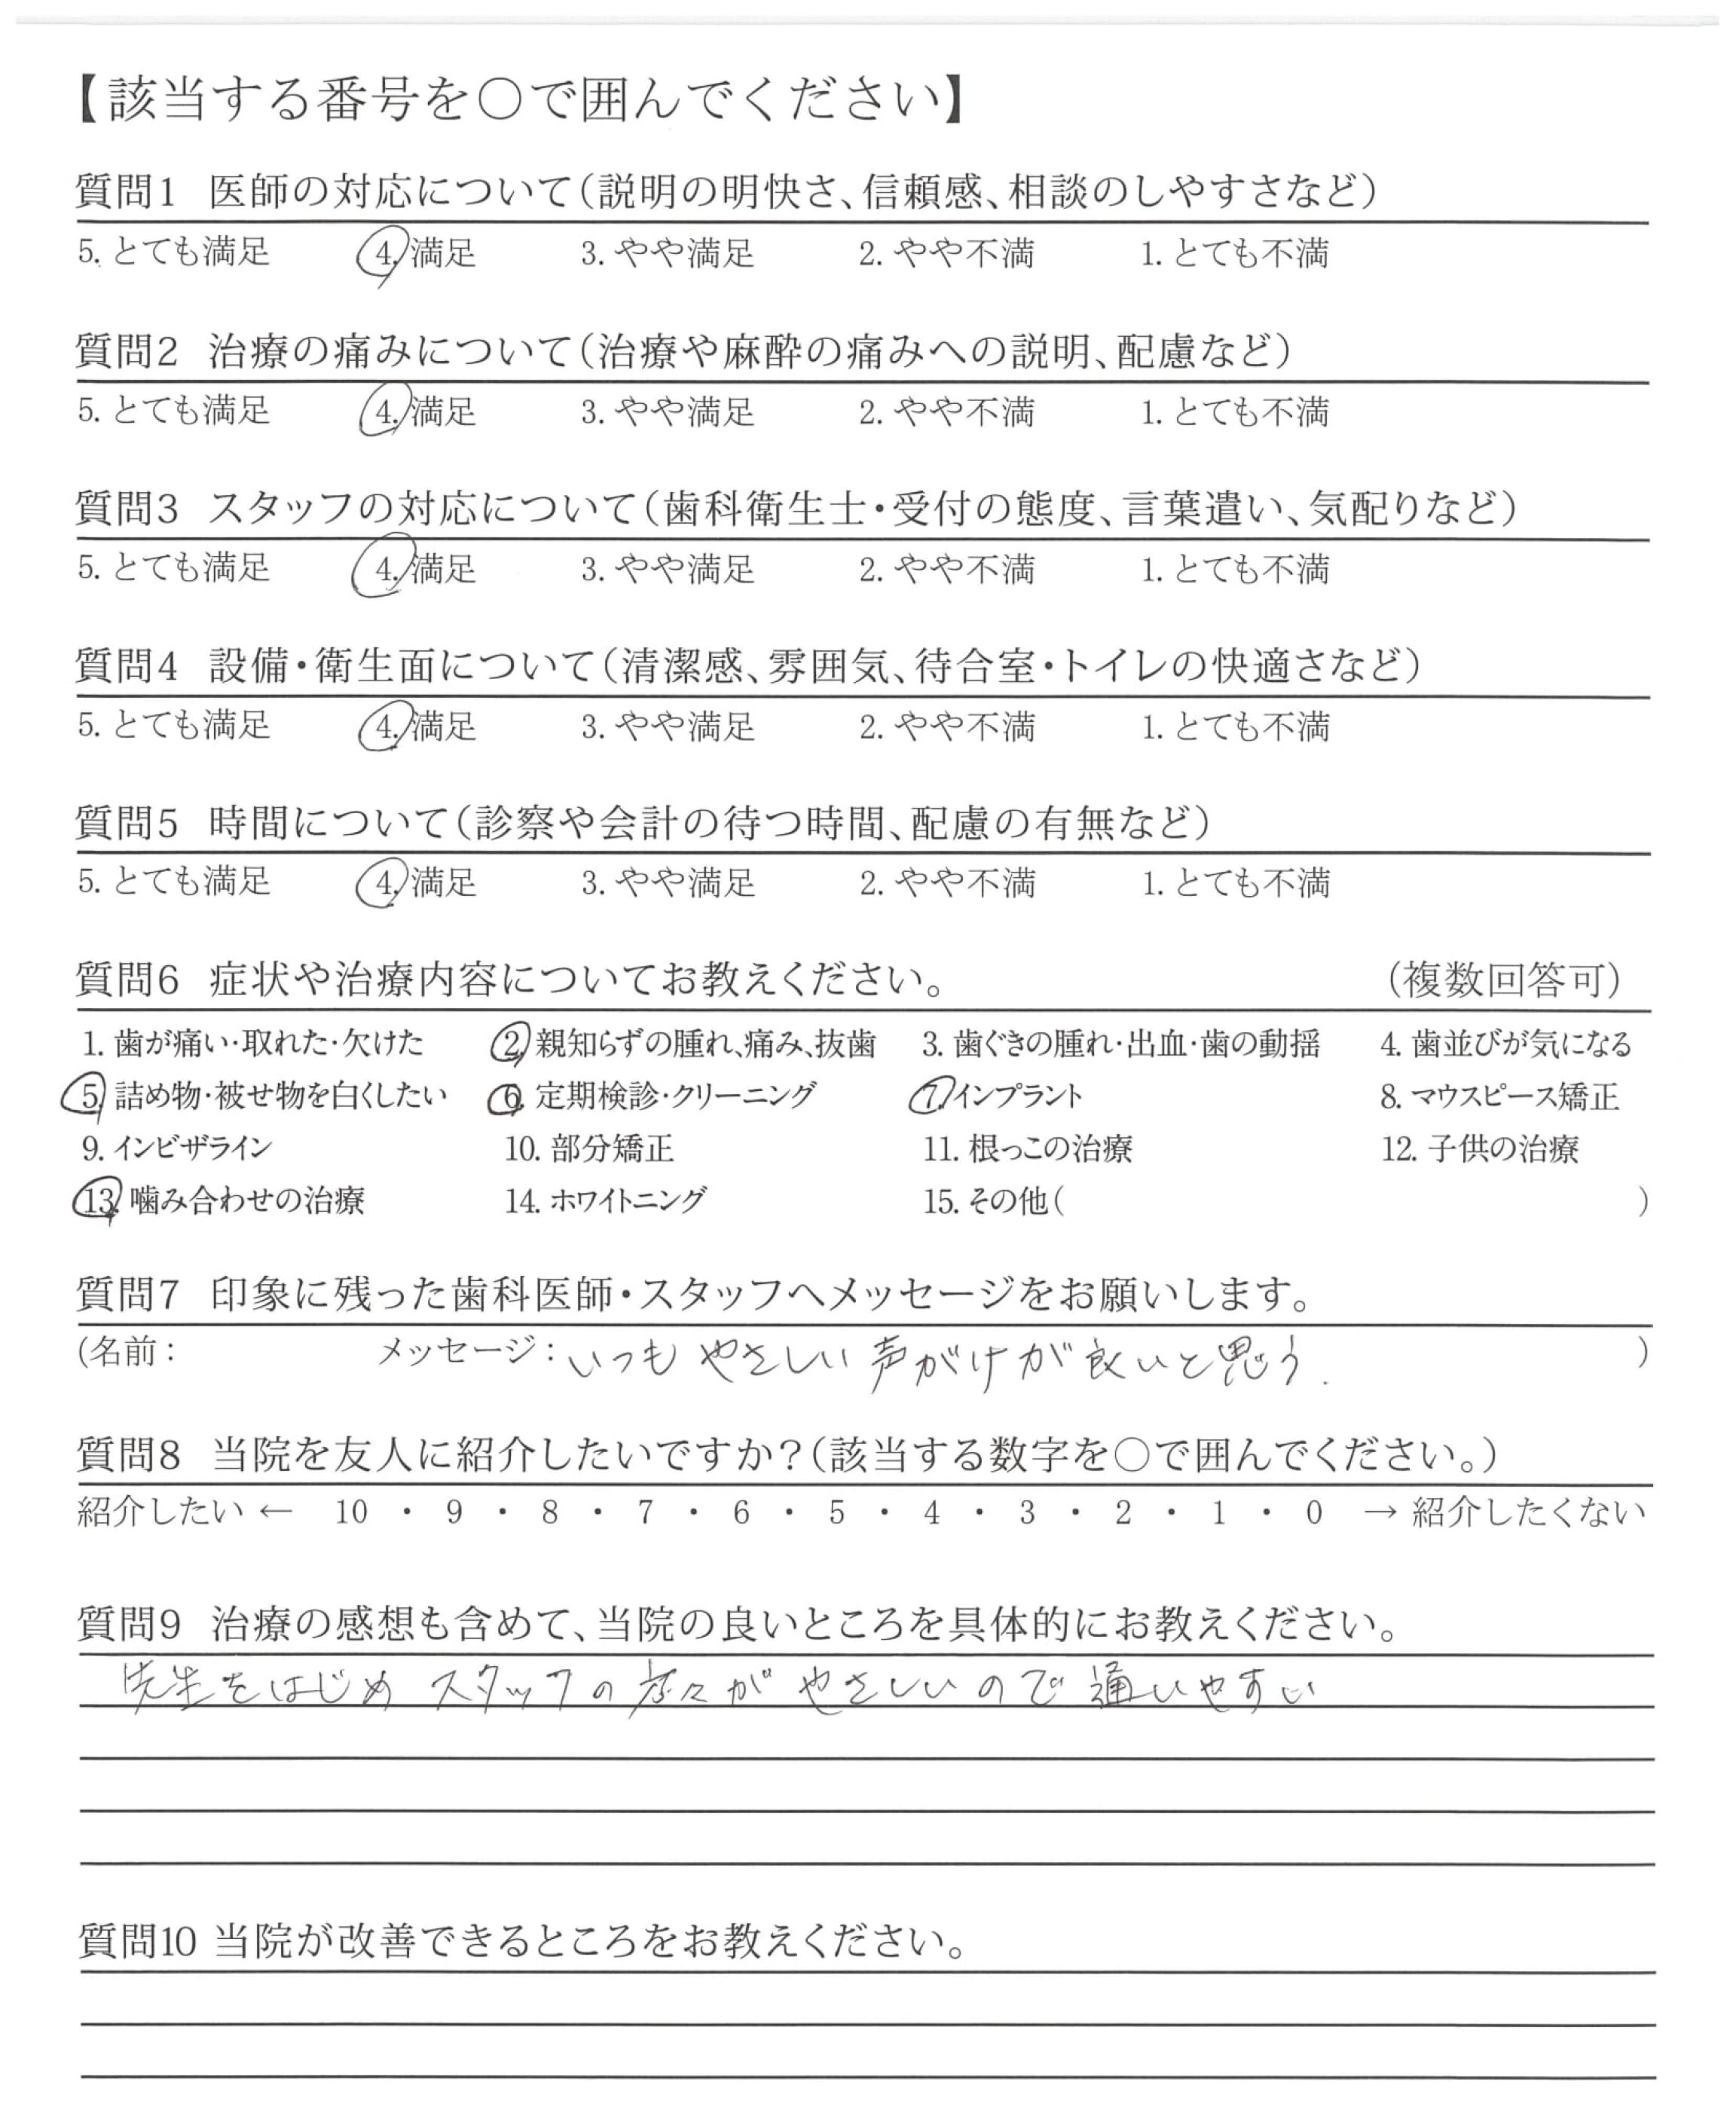 【該当する番号を○で囲んでください】
質問1 医師の対応について（説明の明快さ、信頼感、相談のしやすさなど）
5. とても満足 4. 満足 3. やや満足 2. やや不満 1. とても不満
質問2 治療の痛みについて（治療や麻酔の痛みへの説明、配慮など）
5. とても満足 4. 満足 3. やや満足 2. やや不満 1. とても不満
質問3 スタッフの対応について（歯科衛生士・受付の態度、言葉遣い、気配りなど）
5. とても満足 4. 満足 3. やや満足 2. やや不満 1. とても不満
質問4 設備・衛生面について（清潔感、雰囲気、待合室・トイレの快適さなど）
5. とても満足 4. 満足 3. やや満足 2. やや不満 1. とても不満
質問5 時間について（診察や会計の待つ時間、配慮の有無など）
5. とても満足 4. 満足 3. やや満足 2. やや不満 1. とても不満
質問6 症状や治療内容についてお教えください。 （複数回答可）
1. 歯が痛い・取れた・欠けた 2. 親知らずの腫れ、痛み、抜歯 3. 歯ぐきの腫れ・出血・歯の動揺 4. 歯並びが気になる
5. 詰め物・被せ物を白くしたい 6. 定期検診・クリーニング 7. インプラント 8. マウスピース矯正
9. インビザライン 10. 部分矯正 11. 根っこの治療 12. 子供の治療
13. 噛み合わせの治療 14. ホワイトニング 15. その他（ ）
質問7 印象に残った歯科医師・スタッフへメッセージをお願いします。
（名前： メッセージ：いつもやさしい声がけが良いと思う. ）
質問8 当院を友人に紹介したいですか？（該当する数字を○で囲んでください。）
紹介したい ← 10 ・ 9 ・ 8 ・ 7 ・ 6 ・ 5 ・ 4 ・ 3 ・ 2 ・ 1 ・ 0 → 紹介したくない
質問9 治療の感想も含めて、当院の良いところを具体的にお教えください。
先生をはじめスタッフの方々がやさしいので通いやすい
質問10 当院が改善できるところをお教えください。